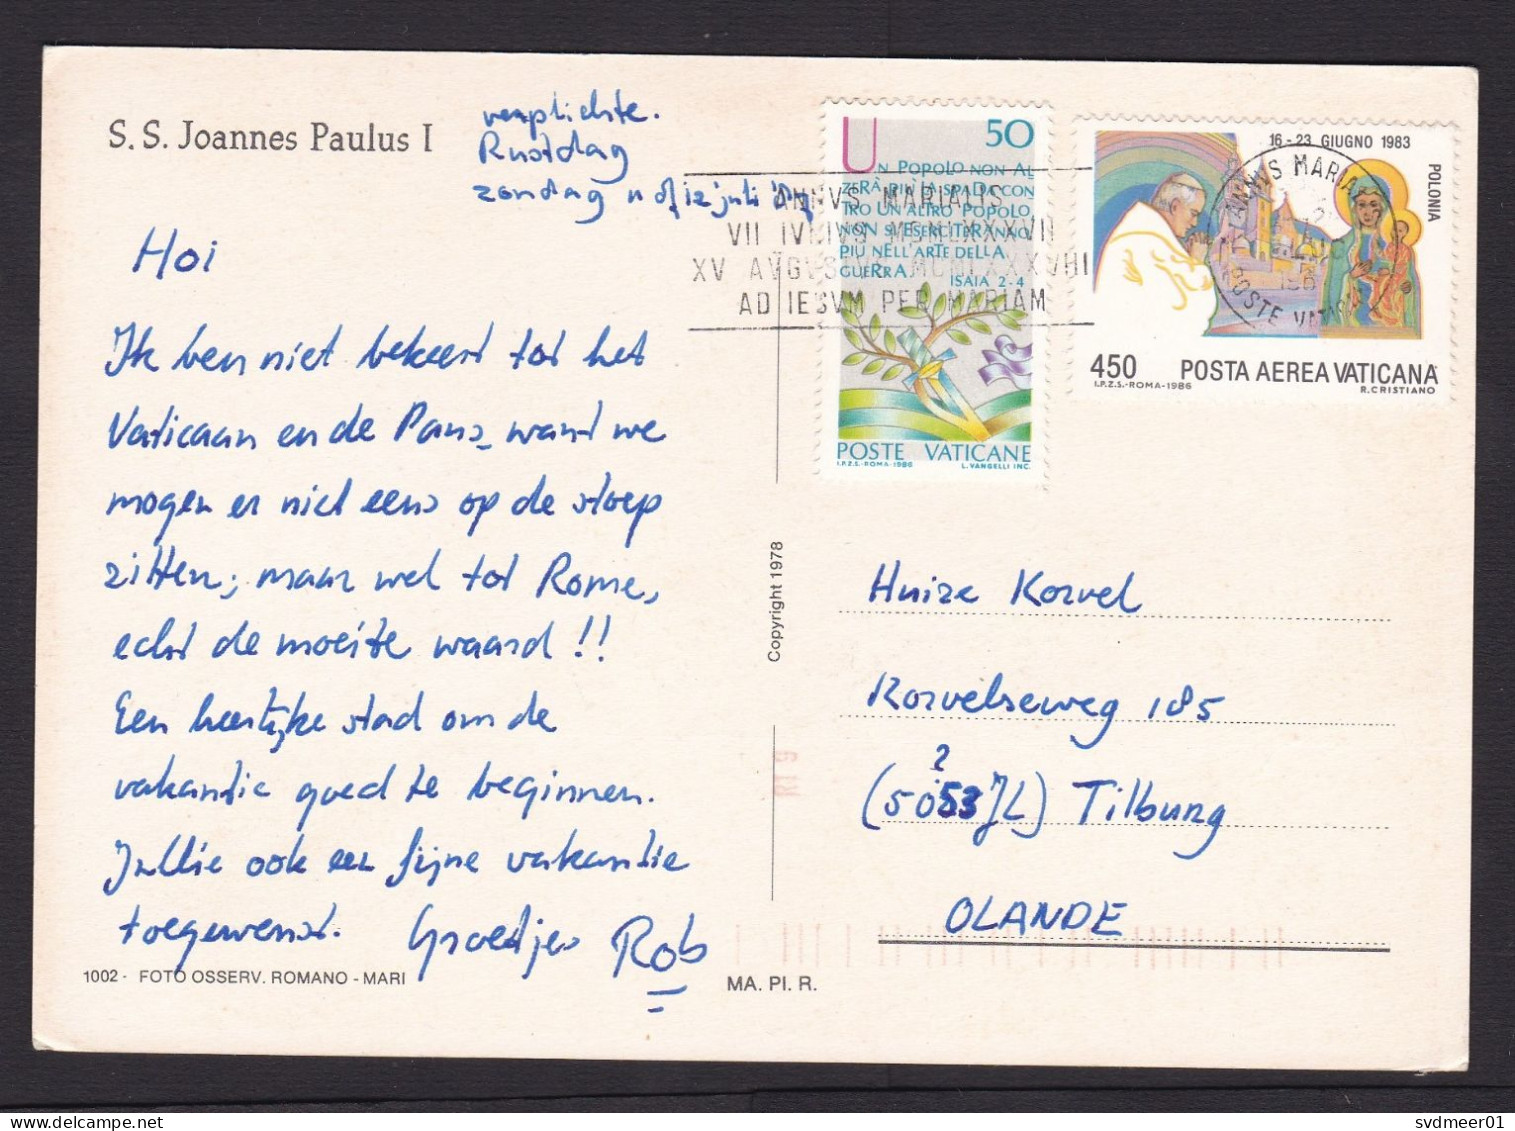 S. S. Joannes Paulus I
verplichte.
Rustdag
zondag n of 12 juli
Hoi
Ik ben niet bekeerd tot het
Vaticaan en de Paus, want we
mogen er niet eens op de stoep
zitten; maar wel tot Rome,
echt de moeite waard!!
Een heerlijke stad om de
vakantie goed te beginnen.
Jullie ook een fijne vakantie
toegewenst. Groetjes Rob
1002 - FOTO OSSERV. ROMANO - MARI
MA. PI. R.
Copyright 1978
50
UN POPOLO NON AL
ZERÀ PIÙ LA SPADA CON
TRO UN ALTRO POPOLO,
NON SI ESERCITERANNO
PIÙ NELL'ARTE DELLA
GUERRA
ISAIA 2-4
POSTE VATICANE
I.P.Z.S.-ROMA-1986 L. VANGELLI INC.
ANNVS MARIALIS
VII IVNIVS MCMLXXXVII
XV AVGVSTVS MCMLXXXVIII
AD IESVM PER MARIAM
16-23 GIUGNO 1983
POLONIA
ANNVS MARIA
POSTE VATICA
450 POSTA AEREA VATICANA
I.P.Z.S.-ROMA-1986 R. CRISTIANO
Huize Korvel
Korvelseweg 185
2
(5053JL) Tilburg
OLANDE
RI 9
svdmeer01